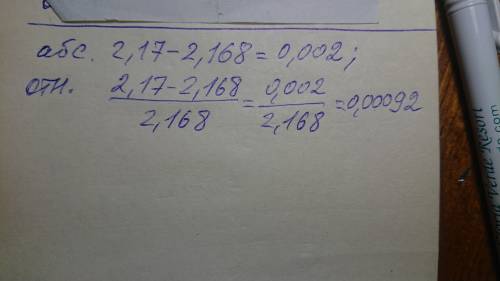 абс. 2,17-2,168=0,002;
отн. \frac{2,17-2,168}{2,168}=\frac{0,002}{2,168}=0,00092
Verde Resort